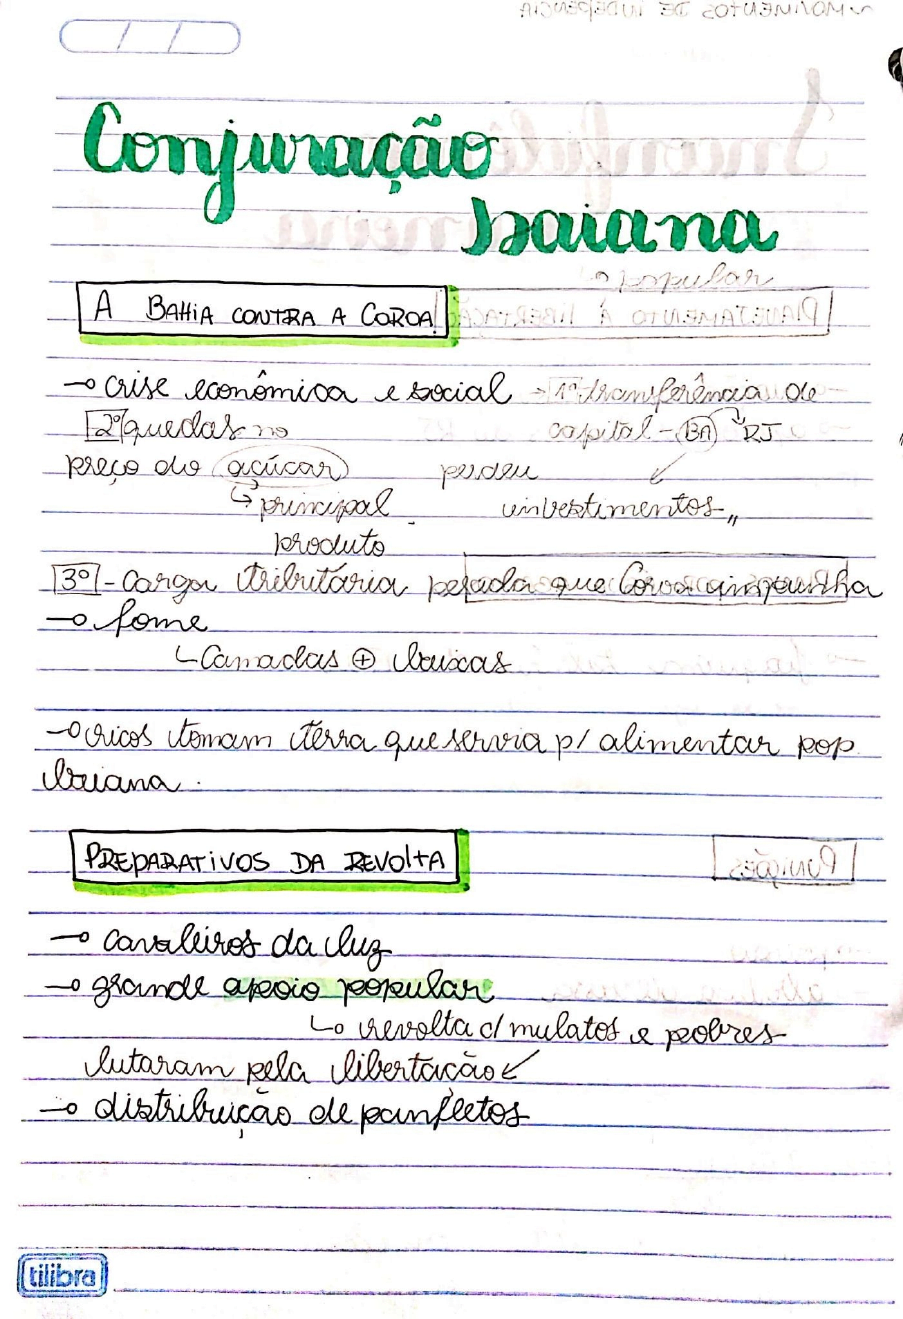 Conjuração
baiana
→ popular
A BAHIA CONTRA A COROA!
→ crise econômica e social → 1º transferência de
2º quedas no capital - BA RJ
preço do açúcar perdeu
↳ principal investimentos,,
produto
3º - carga tributária pesada que Coroa impunha
→ fome
↳ Camadas ⊕ baixas
→ ricos tomam terra que servia p/ alimentar pop.
baiana.
PREPARATIVOS DA REVOLTA
→ cavaleiros da luz
→ grande apoio popular
↳ revolta c/ mulatos e pobres
lutaram pela libertação ↙
→ distribuição de panfletos
tilibra